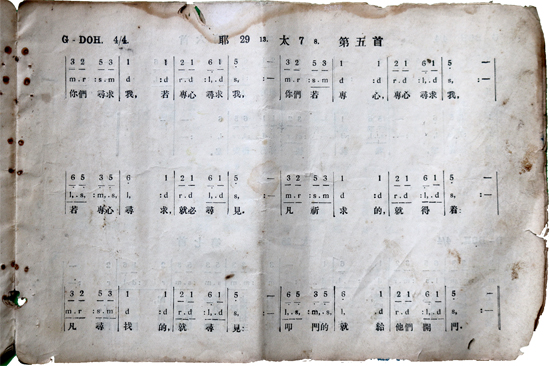 G - DOH. 4/4. 耶 29 13. 太 7 8. 第五首
3 2 5 3 | 1 1 | 2 1 6 1 | 5 — | 3 2 5 3 | 1 1 | 2 1 6 1 | 5 —
m.r :s.m | d :d | r.d :l,.d | s, :— | m.r :s.m | d :d | r.d :l,.d | s, :—
你們 尋求 我, 若 專心 尋求 我, 你們 若 專 心, 專心 尋求 我,
6 5 3 5 | 6 1 | 2 1 6 1 | 5 — | 3 2 5 3 | 1 1 | 2 1 6 1 | 5 —
l,.s, :m,.s, | l, :d | r.d :l,.d | s, :— | m.r :s.m | d :d | r.d :l,.d | s, :—
若 專心 尋 求, 就必 尋 見, 凡 祈 求 的, 就 得 着:
3 2 5 3 | 1 1 | 2 1 6 1 | 5 — | 6 5 3 5 | 6 1 | 2 1 6 1 | 5 —
m.r :s.m | d :d | r.d :l,.d | s, :— | l,.s, :m,.s, | l, :d | r.d :l,.d | s, :—
凡 尋 找 的, 就 尋 見: 叩 門 的 就 給 他們 開 門.